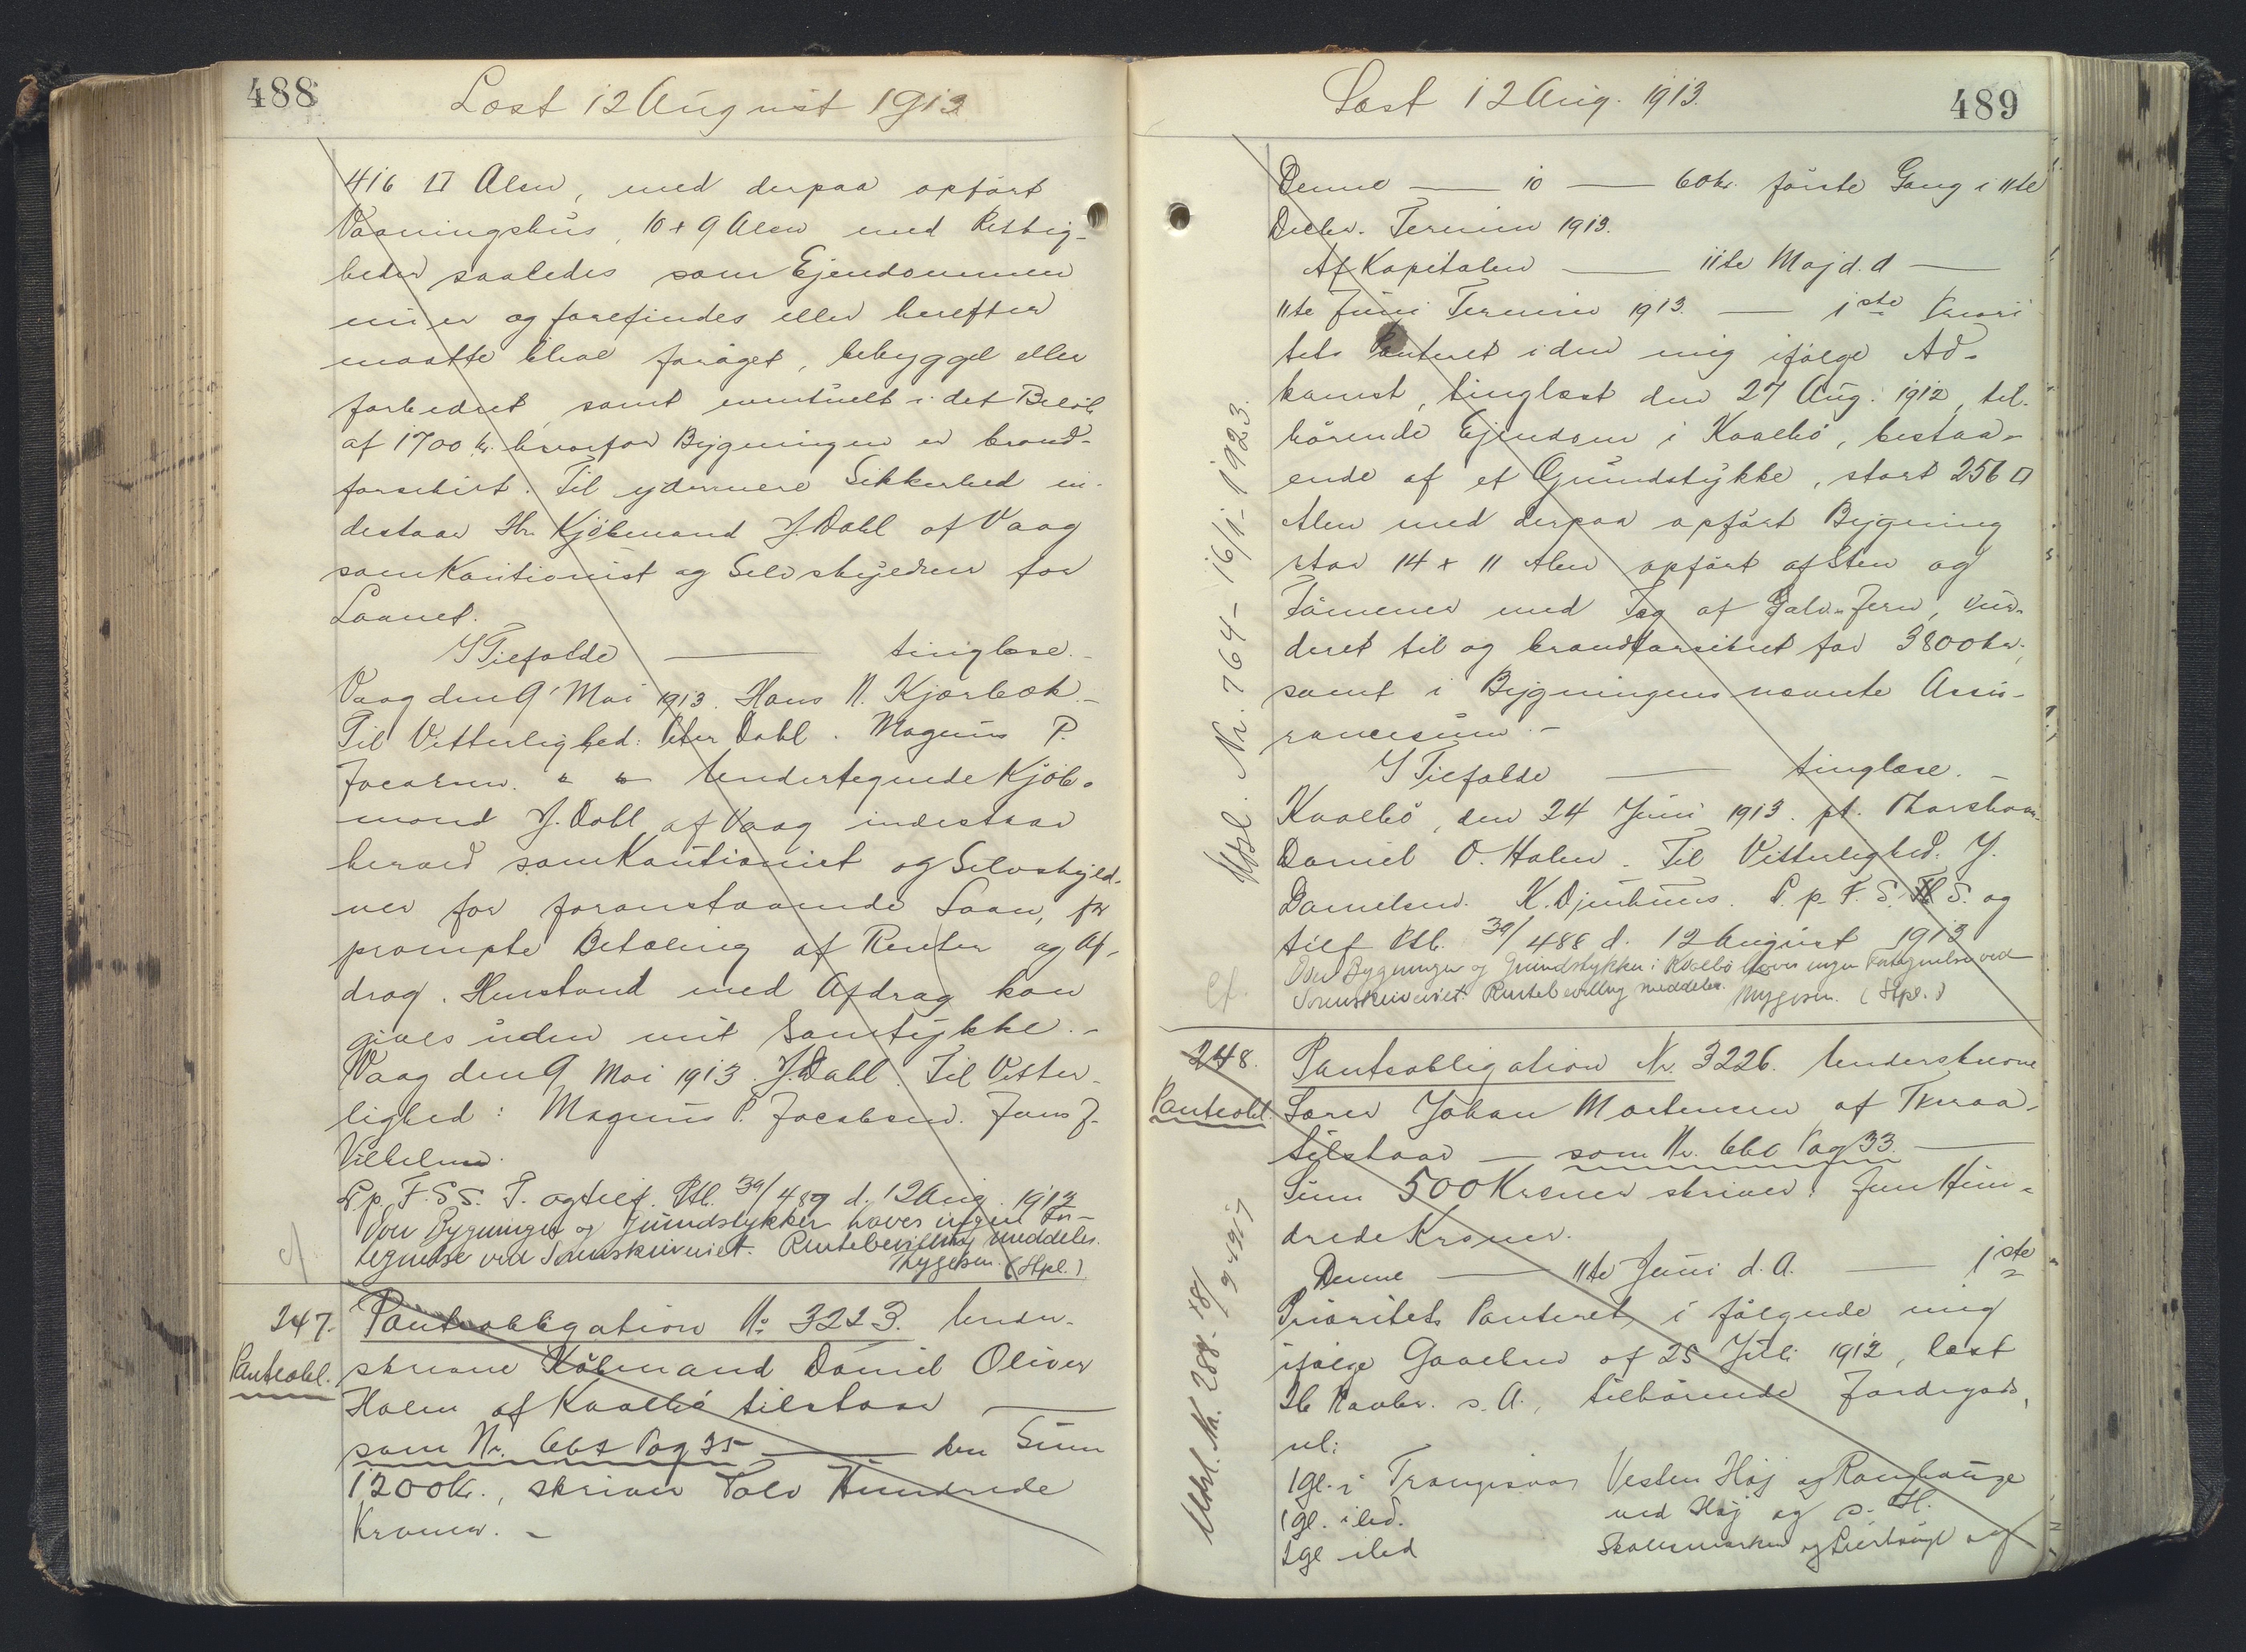 488
Læst 12 August 1913
416 □ Alen, med derpaa opført
Vaaningshus, 10 x 9 Alen med Rettig-
heder saaledes som Ejendommen
nu er og forefindes eller herefter
maatte blive forøget, bebygget eller
forbedret, samt eventuelt i det Beløb
af 1700 kr. hvorfor Bygningen er brand-
forsikret. Til ydermere Sikkerhed in-
destaar Hr. Kjøbmand J. Dahl af Vaag
som Kautionist og Selvskyldner for
Laanet.
I Tilfælde — tinglæse.-
Vaag den 9 Mai 1913. Hans N. Kjærbæk.-
Til Vitterlighed: Peter Dahl. Magnus P.
Jacobsen. " " Undertegnede Kjøb-
mand J. Dahl af Vaag indestaar
herved som Kautionist og Selvskyld-
ner for foranstaaende Laan, for
prompte Betaling af Renter og Af-
drag. Henstand med Afdrag kan
gives uden mit Samtykke.-
Vaag den 9 Mai 1913. J. Dahl. Til Vitter-
lighed: Magnus P. Jacobsen. Jens J.
Vilhelm.
P. p. F. S. S. T. og tilf. Ptb. 39/489 d. 12 Aug. 1913
Over Bygninger og Grundstykker haves ingen For-
tegnelse ved Sorenskriveriet. Rentebevilling meddeles.
Mygesen. (Stpl.)
cf.
247.
Panteobl.
Panteobligation No 3223. Under-
skrevne Købmand Daniel Oliver
Holm af Kvalbø tilstaar —
som Nr. 662 Pag 35 — den Sum
1200 Kr., skriver Tolv Hundrede
Kroner. -
Læst 12 Aug. 1913.
489
Denne — 10 — 60 kr. første Gang i 11te
Decbr. Termin 1913.
Af Kapitalen — 11te Maj d. d —
11te Juni Termin 1913. — 1ste Priori
tets Panteret i den mig ifølge Ad-
komst, tinglæst den 27 Aug. 1912, til-
hørende Ejendom i Kvalbø, bestaa-
ende af et Grundstykke, stort 256 □
Alen med derpaa opført Bygning
stor 14 x 11 Alen opført af Sten og
Tømmer med Tag af Galv. Jern, vur-
deret til og brandforsikret for 3800 kr.,
samt i Bygningens nævnte Assu-
rancesum.-
I Tilfælde — tinglæse.-
Kvalbø, den 24 Juni 1913. pt. Thorshavn.
Daniel O. Holm. Til Vitterlighed. J.
Danielsen. K. Djurhuus. P. p. F. S. S. og
tilf. Ptb. 39/488 d. 12 August 1913
Over Bygninger og Grundstykker i Kvalbø haves ingen Fortegnelse ved
Sorenskriveriet. Rentebevilling meddeles. Mygesen. (Stpl.)
cf.
Udsl. Nr. 764 - 16/1-1923.
248.
Panteobl.
Panteobligation Nr. 3226. Underskrevne
Søren Johan Mortensen af Tveraa-
tilstaar — som Nr. 660 Pag 33. —
Sum 500 Kroner skriver: Fem Hun-
drede Kroner.
Denne — 11te Juni d. A. — 1ste
Prioritets Panteret i følgende mig
ifølge Gavebrev af 25 Juli 1912, læst
26 Novbr. s. A., tilhørende Jordegods,
nl:
1 gl. i Trangisvaag Vesten Høj og
1 gl. ibd. ved Høj og s. H.
2 gl ibd
Udsl. Nr. 288. 18/9-1917